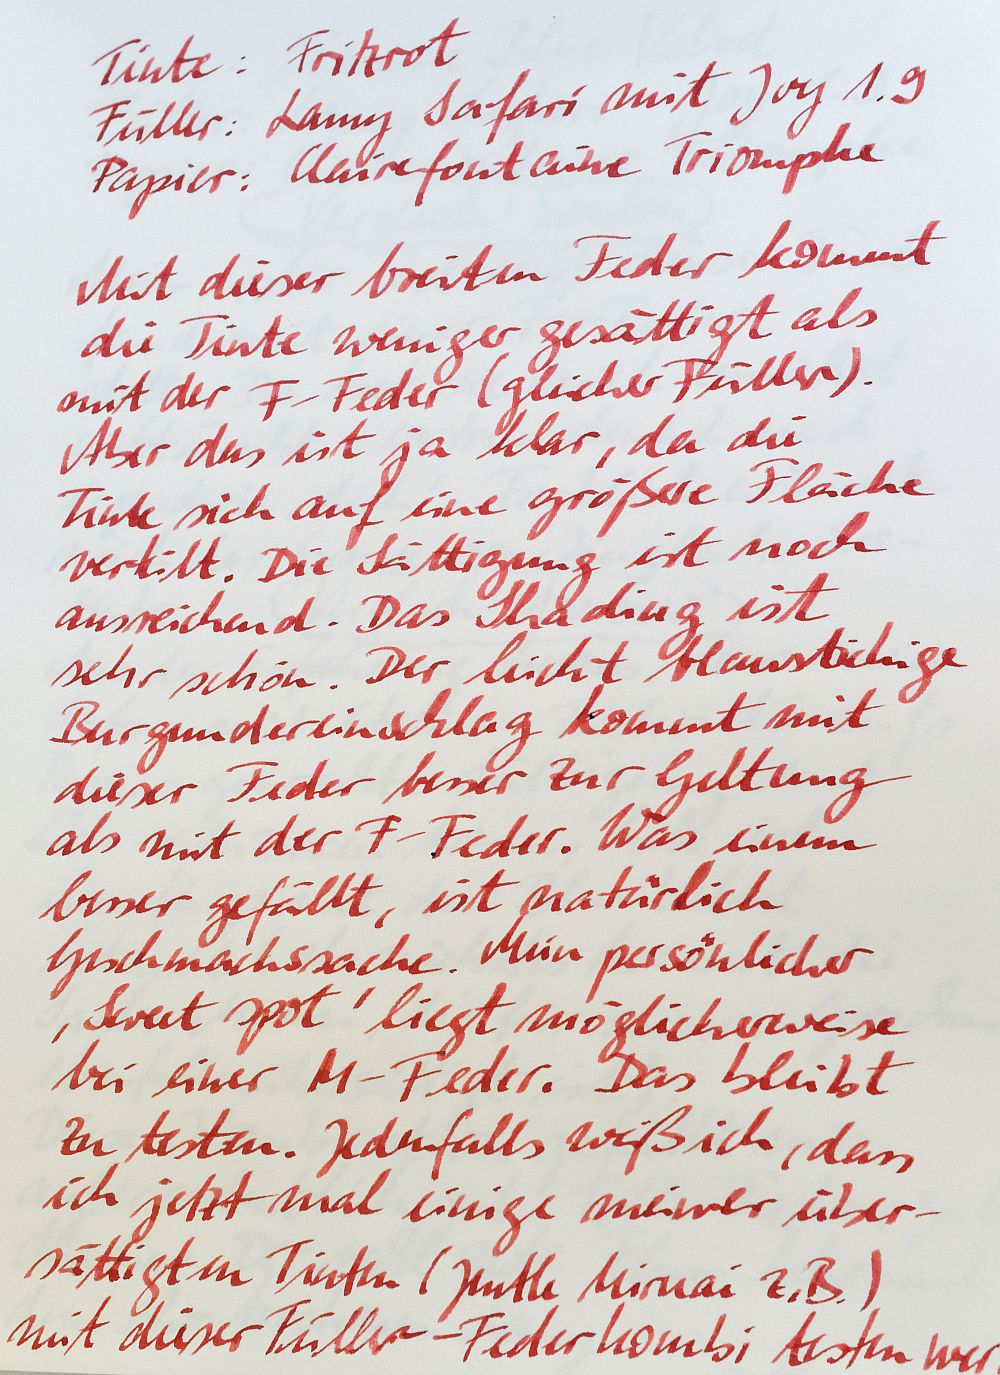 Tinte: Fritzrot
Füller: Lamy Safari mit Joy 1.9
Papier: Clairefontaine Triomphe
Mit dieser breiten Feder kommt
die Tinte weniger gesättigt als
mit der F-Feder (gleicher Füller).
Aber das ist ja klar, da die
Tinte sich auf eine größere Fläche
verteilt. Die Sättigung ist noch
ausreichend. Das Shading ist
sehr schön. Der leicht blaustichige
Burgundereinschlag kommt mit
dieser Feder besser zur Geltung
als mit der F-Feder. Was einem
besser gefällt, ist natürlich
Geschmackssache. Mein persönlicher
‚Sweet spot' liegt möglicherweise
bei einer M-Feder. Das bleibt
zu testen. Jedenfalls weiß ich, dass
ich jetzt mal einige meiner über-
sättigten Tinten (Pelle z.B.)
mit dieser Füller-Federkombi testen wer